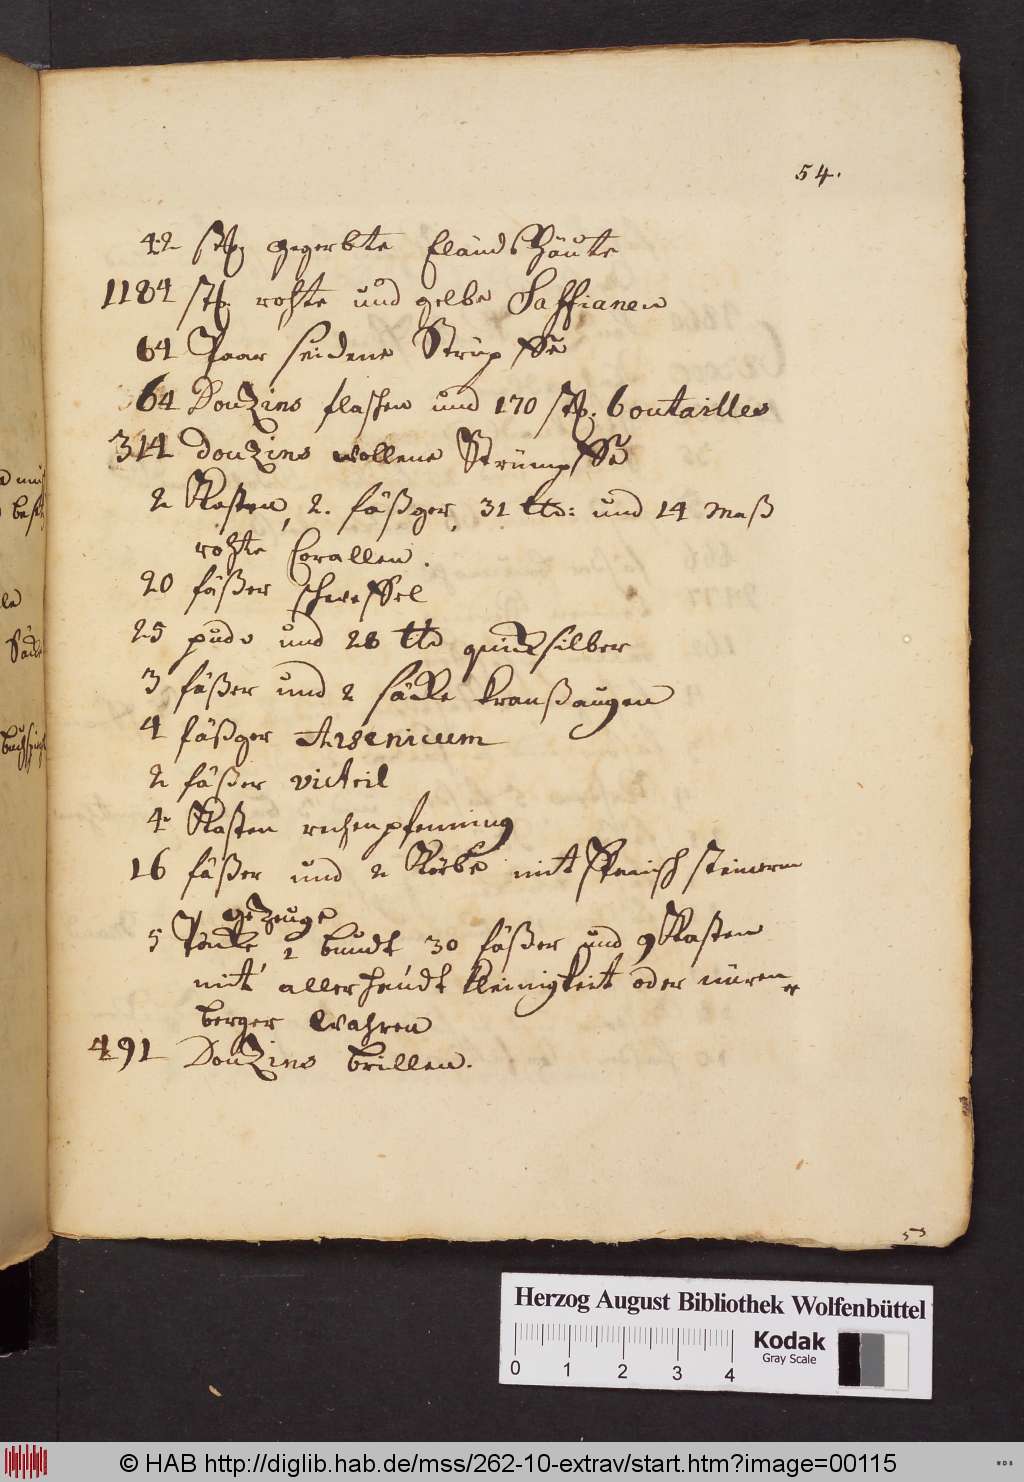 54.
42 stk. gegerbte Elands Häute
1184 stk. rohte und gelbe Saffianen
64 Paar seidene Strüpffe
64 Douzins flaschen und 170 stk. boutailles
314 douzins wollene Strümpffe
2 Kasten, 2. fäßger, 31 ℔: und 14 Maß
rohte Corallen.
20 fäßer schweffel
25 pud und 28 ℔ quicksilber
3 fäßer und 2 säcke kranßaugen
4 fäßger Arsenicum
2 fäßer victril
4 Kasten rechenpfenning
16 fäßer und 2 Körbe mit Spanisch steinern
gezeuge
5 Päcke 2 bundt 30 fäßer und 9 Kasten
mit allerhandt kleinigkeit oder nüren-
berger Wahren
491 Douzins brillen.
55
le
Herzog August Bibliothek Wolfenbüttel
Kodak
Gray Scale
0 1 2 3 4
© HAB http://diglib.hab.de/mss/262-10-extrav/start.htm?image=00115